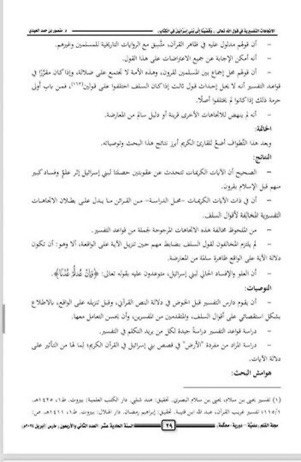 الاتجاهات التفسيرية في قول الله تعالى: ﴿وَقَضَيْنَا إِلَى بَنِي إِسْرَائِيلَ فِي الْكِتَابِ﴾ د. منصور بن حمد العيدي
- أن قولهم مدلول عليه في ظاهر القرآن، متسق مع الروايات التاريخية للمسلمين وغيرهم.
- أنه أمكن الإجابة عن جميع الاعتراضات على هذا القول.
- أن قولهم محل إجماع بين المسلمين لقرون، وهذه الأمة لا تجتمع على ضلالة، وإذا كان مقررًا في
قواعد التفسير أنه لا يجوز إحداث قول ثالث إذا كان السلف اختلفوا على قولين، فمن باب أولى
حرمة ذلك إذا كانوا لم يختلفوا أصلًا.
- أنه لم ينهض للاتجاهات الأخرى قرينة أو دليل سالم من المعارضة.
الخاتمة:
وبعد هذا التطواف أضع للقارئ الكريم أبرز نتائج هذا البحث وتوصياته.
النتائج:
- الصحيح أن الآيات الكريمات تتحدث عن عقوبتين حصلتا لبني إسرائيل إثر علو وفساد كبير
منهم قبل الإسلام بقرون.
- أن في ذات الآيات الكريمات -محل الدراسة- من القرائن ما يدل على بطلان الاتجاهات
التفسيرية المخالفة لأقوال السلف.
- من الملحوظ مخالفة هذه الاتجاهات المرجوحة لجملة من قواعد التفسير.
- لم يلتزم المخالفون لقول السلف بضابط مهم حين تنزيل الآية على الواقعة، ألا وهو: أن تكون
دلالة الآية على الواقع ظاهرة سالمة من المعارضة.
- أن العلو والإفساد الحالي لبني إسرائيل، متوعدون عليه بقوله تعالى: ﴿وَإِنْ عُدتُّمْ عُدْنَا﴾.
التوصيات:
- أن يقوم دارس التفسير قبل الخوض في دلالة النص القرآني، وقبل تنزيله على الواقع، بالاطلاع
بشكل استقصائي على أقوال السلف، والمتقدمين من المفسرين، وأن يحسن التعامل معها.
- دراسة قواعد التفسير دراسة جيدة لكل من يريد التكلم في التفسير.
- دراسة المراد من مفردة "الأرض" في قصص بني إسرائيل في القرآن الكريم؛ لما لها من التأثير على
دلالة الآيات.
هوامش البحث:
(١) تفسير يحيى بن سلام، يحيى بن سلام البصري. تحقيق: هند شلبي. دار الكتب العلمية: بيروت. ط١، ١٤٢٥هـ.
مجلة القلم (علمية - دورية - محكمة) ٢٩ السنة الحادية عشر: العدد الثاني والأربعون